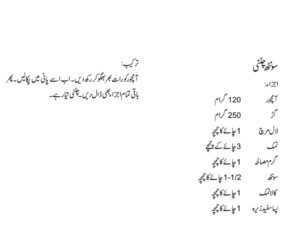 سونٹھ چٹنی
اجزاء:
آمچور 120 گرام
گڑ 250 گرام
لال مرچ 1 چائے کا چمچہ
نمک 3 چائے کے چمچے
گرم مصالحہ 1 چائے کا چمچہ
سونٹھ 1-1/2 چائے کا چمچہ
کالا نمک 1 چائے کا چمچہ
پسا سفید زیرہ 1 چائے کا چمچہ
ترکیب:
آمچور کو رات بھر بھگو کر رکھ دیں۔ اب اسے پانی میں پکا لیں۔ پھر
باقی تمام اجزاء بھی ڈال دیں۔ چٹنی تیار ہے۔